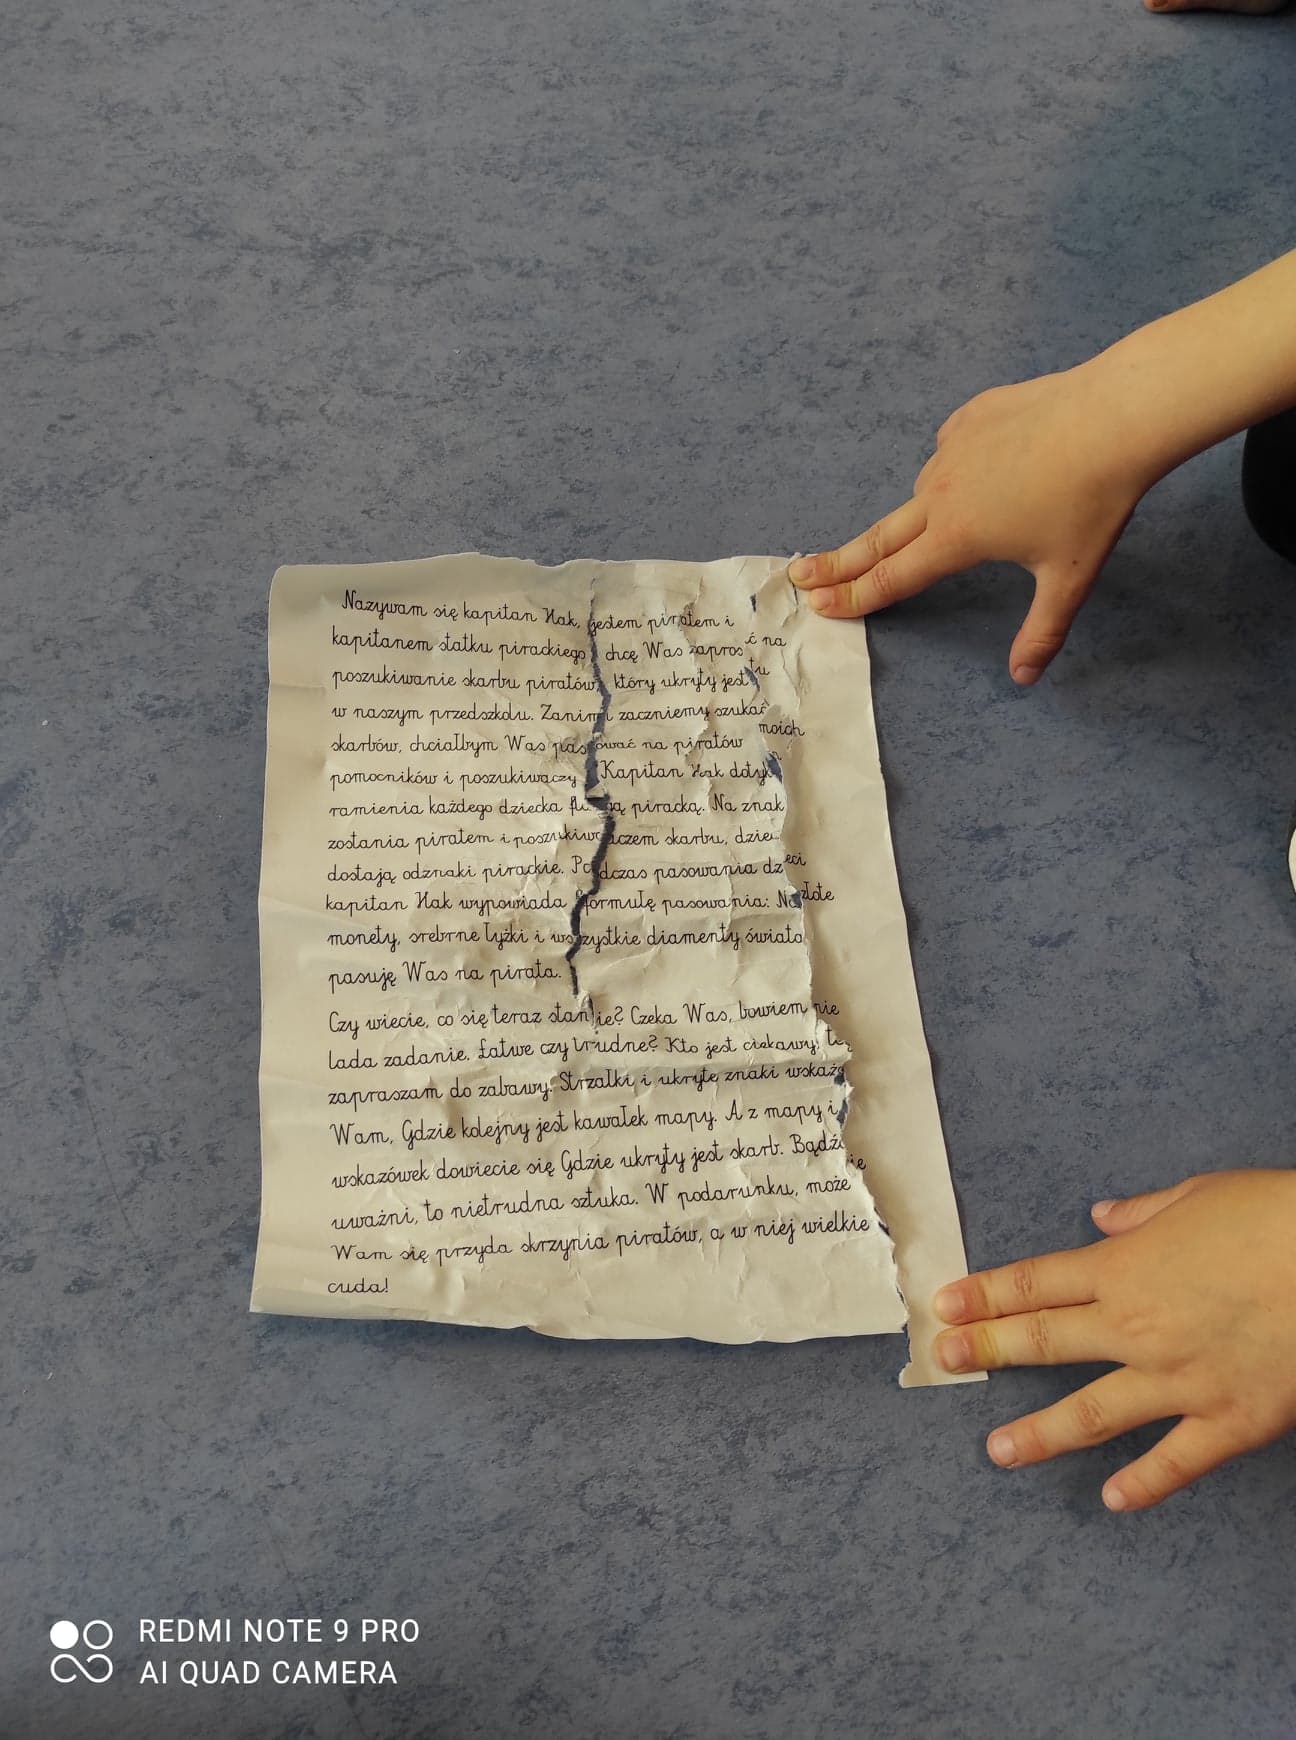 Nazywam się kapitan Hak, jestem piratem i
kapitanem statku pirackiego i chcę Was zaprosić na
poszukiwanie skarbu piratów, który ukryty jest tu
w naszym przedszkolu. Zanim zaczniemy szukać
skarbów, chciałbym Was pasować na piratów moich
pomocników i poszukiwaczy. Kapitan Hak dotyka
ramienia każdego dziecka flagą piracką. Na znak
zostania piratem i poszukiwaczem skarbu, dzieci
dostają odznaki pirackie. Podczas pasowania dzieci
kapitan Hak wypowiada formułę pasowania: Na złote
monety, srebrne łyżki i wszystkie diamenty świata
pasuję Was na pirata.
Czy wiecie, co się teraz stanie? Czeka Was, bowiem nie
lada zadanie. Łatwe czy trudne? Kto jest ciekawy
zapraszam do zabawy. Strzałki i ukryte znaki wskażą
Wam, Gdzie kolejny jest kawałek mapy. A z mapy i
wskazówek dowiecie się Gdzie ukryty jest skarb. Bądźcie
uważni, to nietrudna sztuka. W podarunku, może
Wam się przyda skrzynia piratów, a w niej wielkie
cuda!
REDMI NOTE 9 PRO
AI QUAD CAMERA